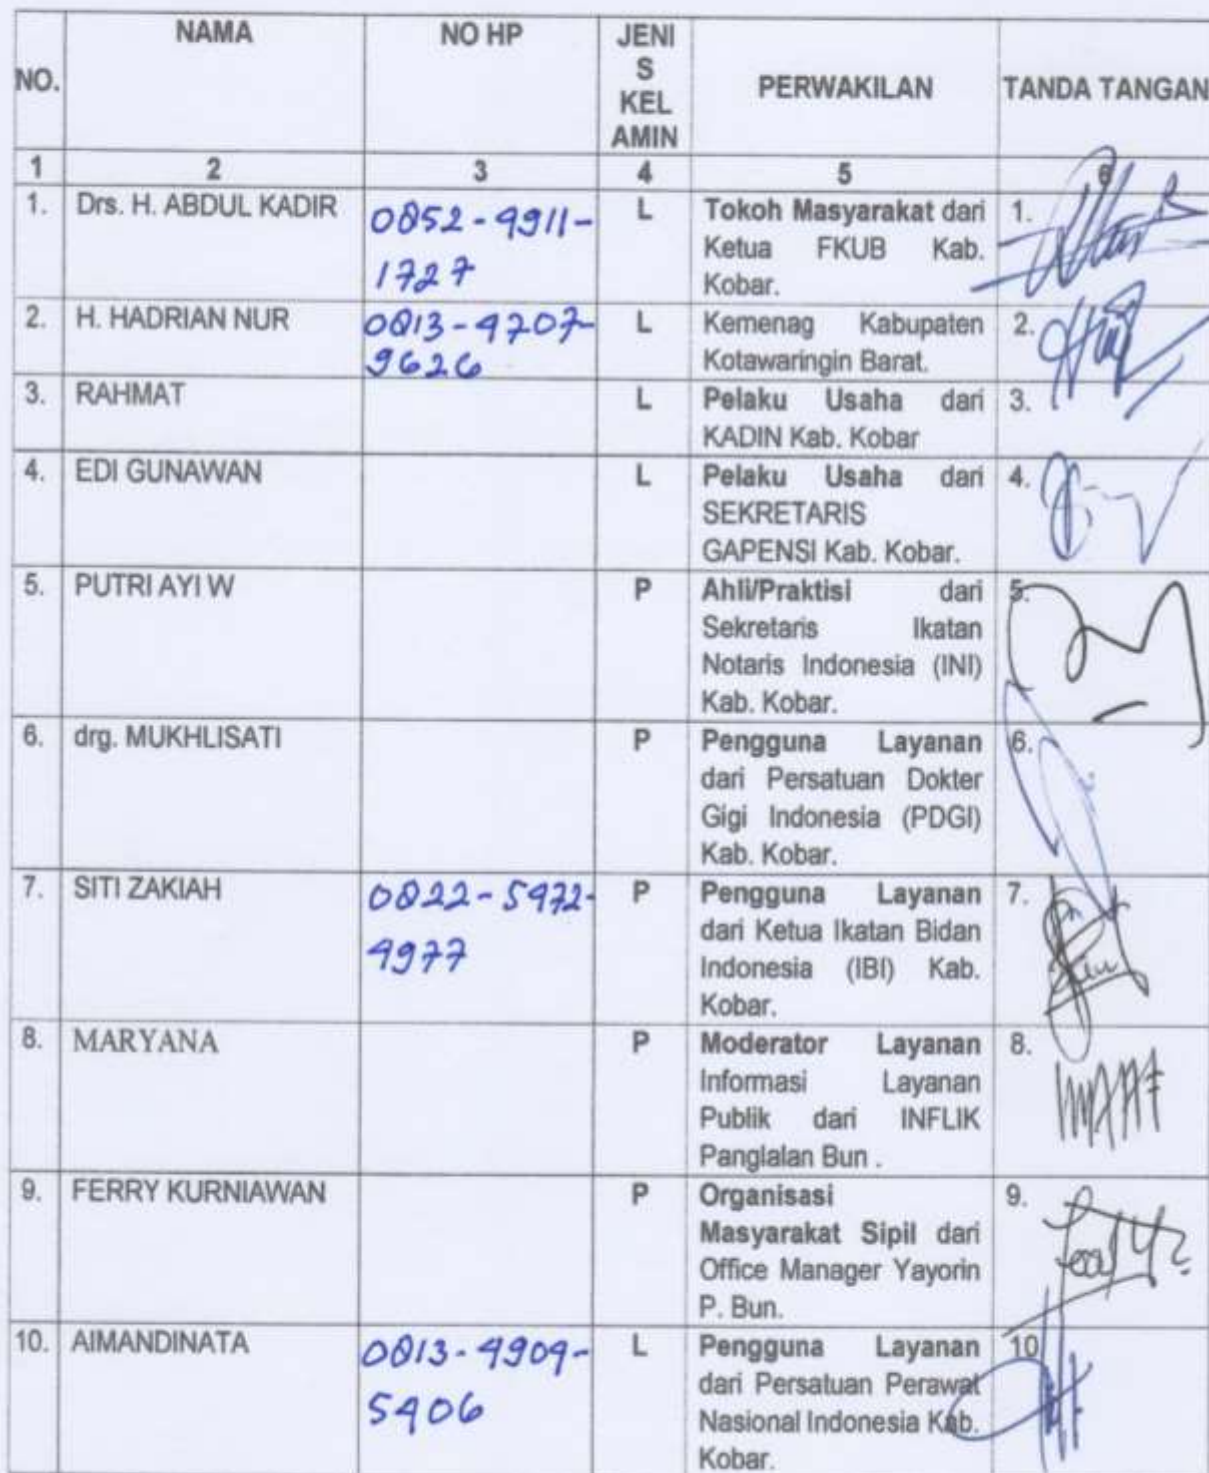 NO.
NAMA
NO HP
JENI
S
KEL
AMIN
PERWAKILAN
TANDA TANGAN
1 2 3 4 5 6
1. Drs. H. ABDUL KADIR 0852-4911- L Tokoh Masyarakat dari 1.
1727 Ketua FKUB Kab.
Kobar.
2. H. HADRIAN NUR 0813-4707- L Kemenag Kabupaten 2.
9626 Kotawaringin Barat.
3. RAHMAT L Pelaku Usaha dari 3.
KADIN Kab. Kobar
4. EDI GUNAWAN L Pelaku Usaha dari 4.
SEKRETARIS
GAPENSI Kab. Kobar.
5. PUTRI AYI W P Ahli/Praktisi dari 5.
Sekretaris Ikatan
Notaris Indonesia (INI)
Kab. Kobar.
6. drg. MUKHLISATI P Pengguna Layanan 6.
dari Persatuan Dokter
Gigi Indonesia (PDGI)
Kab. Kobar.
7. SITI ZAKIAH 0822-5472- P Pengguna Layanan 7.
4977 dari Ketua Ikatan Bidan
Indonesia (IBI) Kab.
Kobar.
8. MARYANA P Moderator Layanan 8.
Informasi Layanan
Publik dari INFLIK
Panglalan Bun .
9. FERRY KURNIAWAN P Organisasi 9.
Masyarakat Sipil dari
Office Manager Yayorin
P. Bun.
10. AIMANDINATA 0813-4909- L Pengguna Layanan 10
5406 dari Persatuan Perawat
Nasional Indonesia Kab.
Kobar.